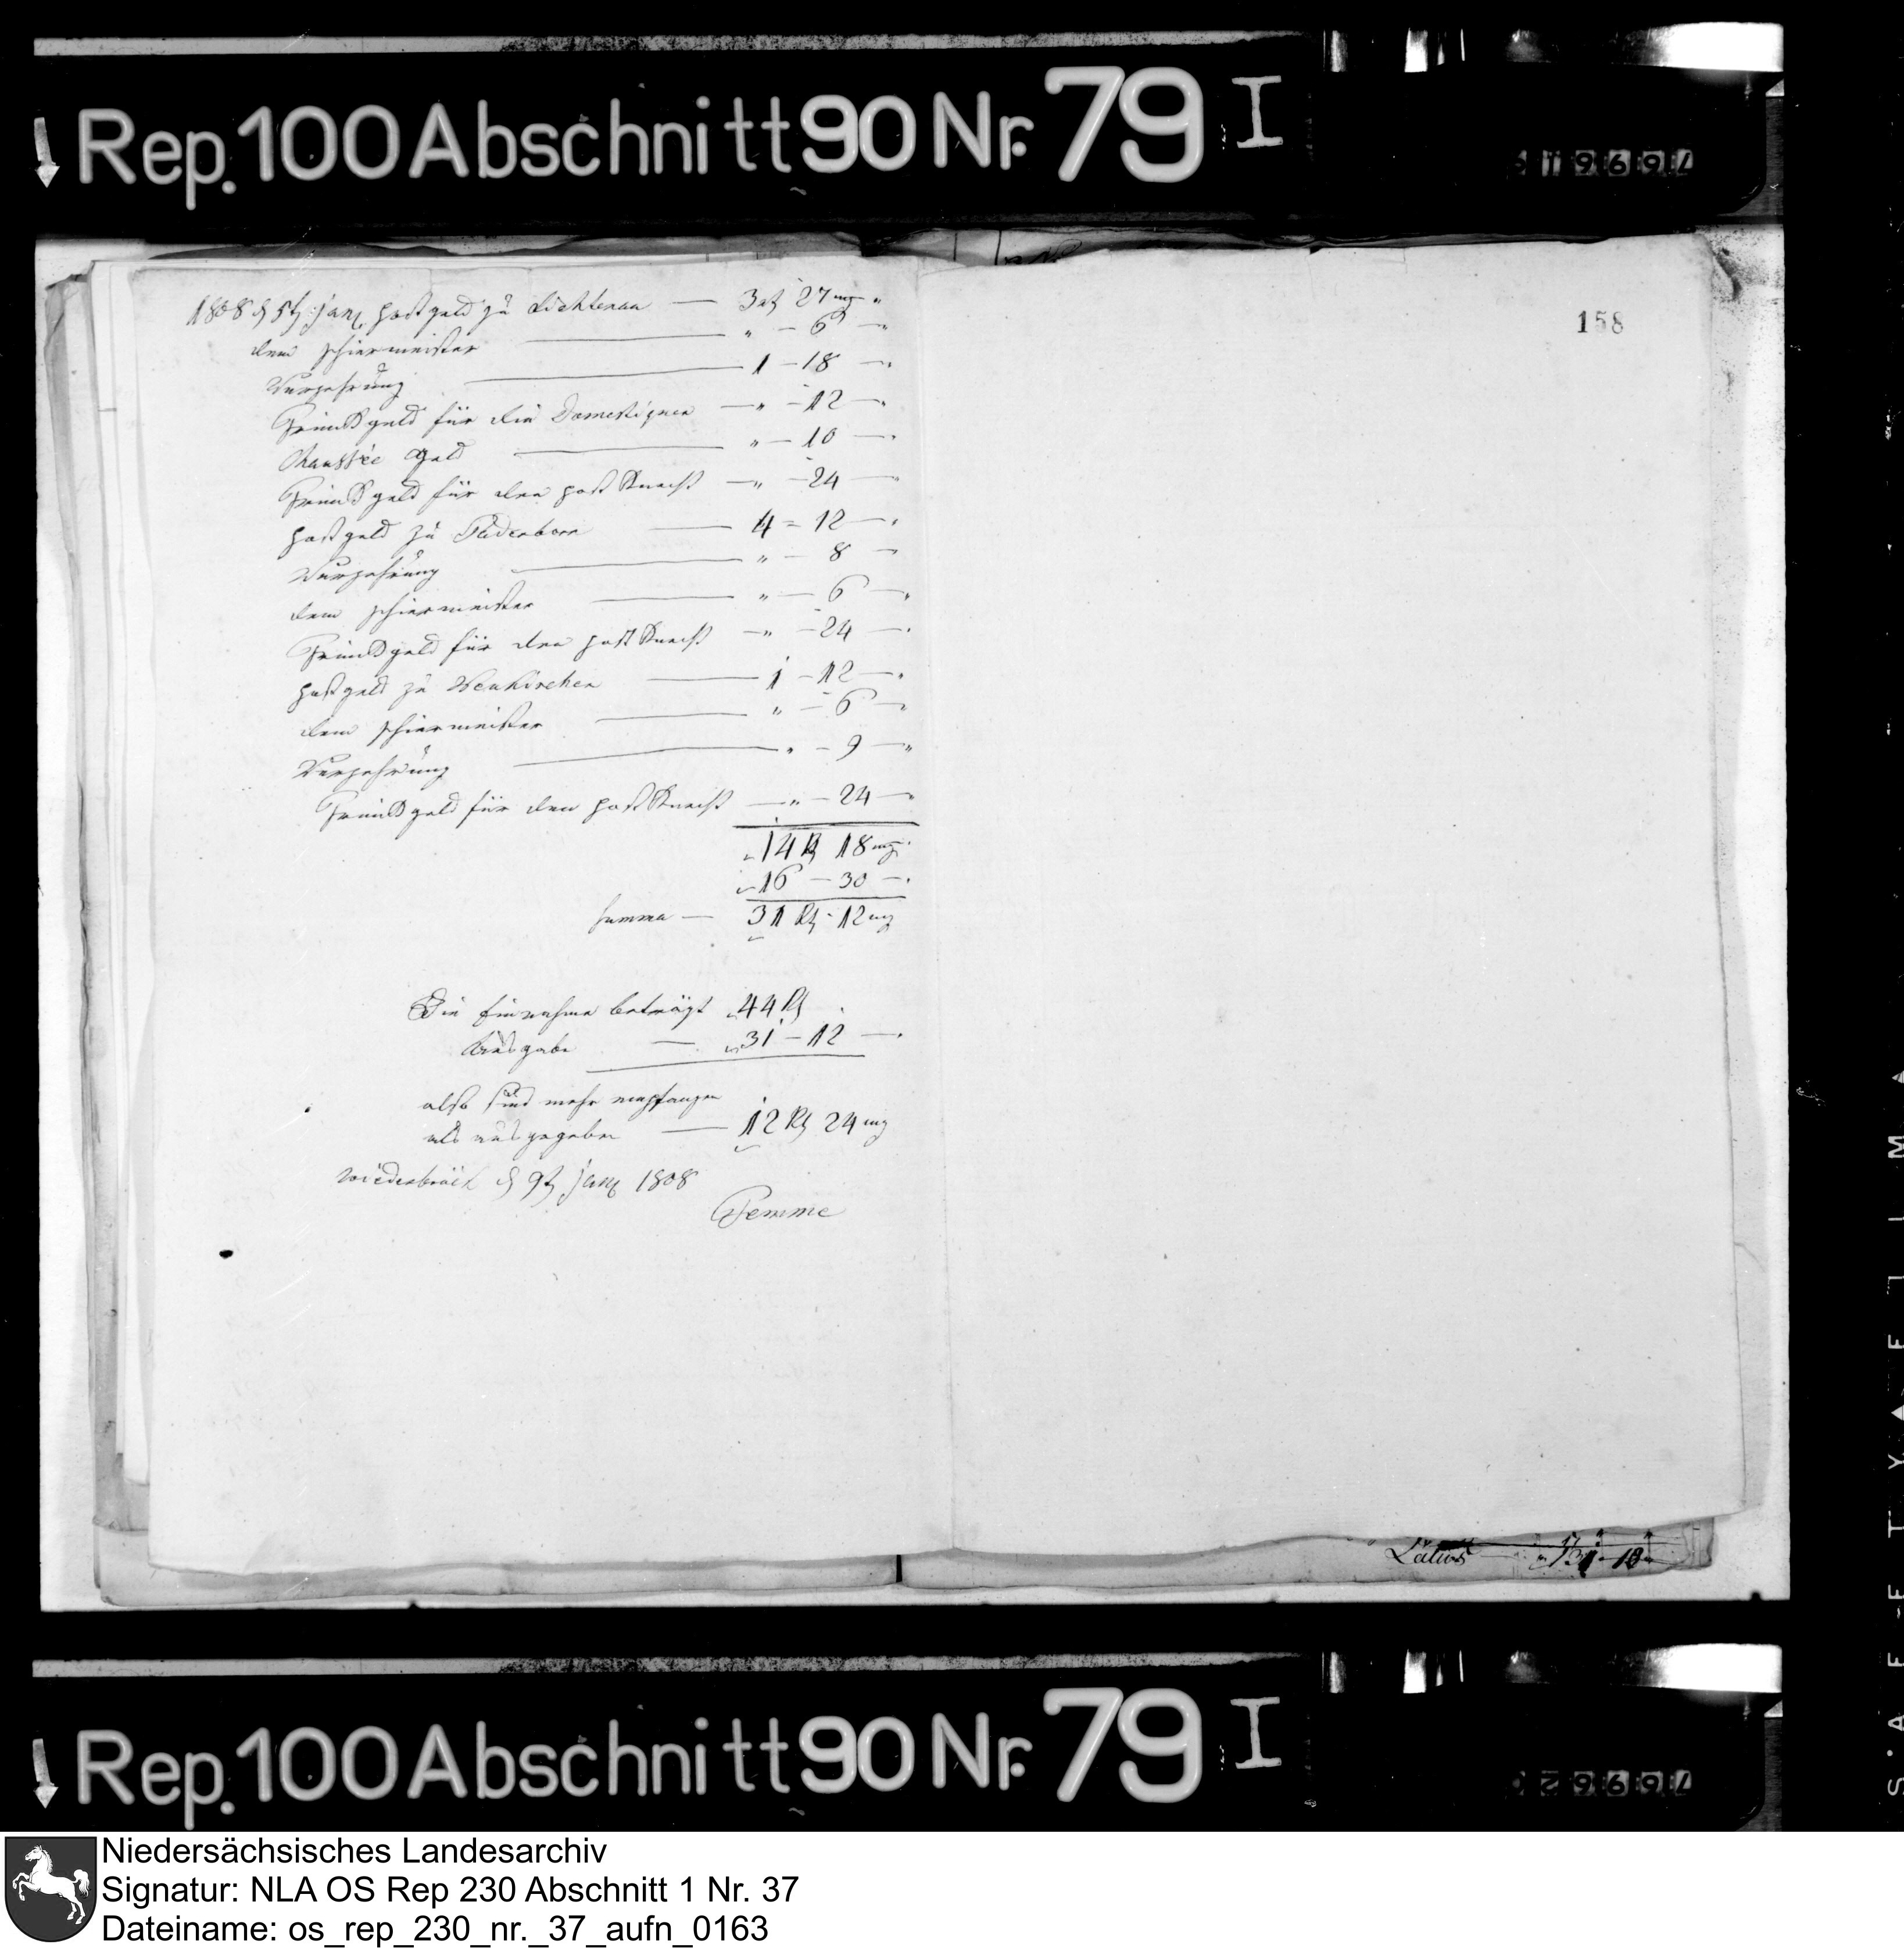 Rep. 100 Abschnitt 90 Nr. 79 I
158
1808 d 5t Jan. Postgeld zu Lichtenau — 3 rt 27 mg "
dem Schirrmeister — " — 6 — "
Verzehrung — 1 — 18 — "
Trinckgeld für die Domestiquen — " — 12 — "
Chaussée Geld — " — 10 — "
Trinckgeld für den Postknecht — " — 24 — "
Postgeld zu Paderborn — 4 = 12 — "
Verzehrung — " — 8 — "
dem Schirrmeister — " — 6 — "
Trinckgeld für den Postknecht — " — 24 — "
Postgeld zu Neukirchen — 1 — 12 — "
dem Schirrmeister — " — 6 — "
Verzehrung — " — 9 — "
Trinckgeld für den Postknecht — " — 24 — "
14 Rt 18 mg
16 — 30 — "
Summa — 31 Rt 12 mg
Die Einnahme beträgt 44 Rt
Ausgabe — 31 — 12 — "
also sind mehr empfangen
als ausgegeben — 12 Rt 24 mg
Wiedenbrück d 9t Jan 1808
Temme
Latus
Rep. 100 Abschnitt 90 Nr. 79 I
Niedersächsisches Landesarchiv
Signatur: NLA OS Rep 230 Abschnitt 1 Nr. 37
Dateiname: os_rep_230_nr._37_aufn_0163